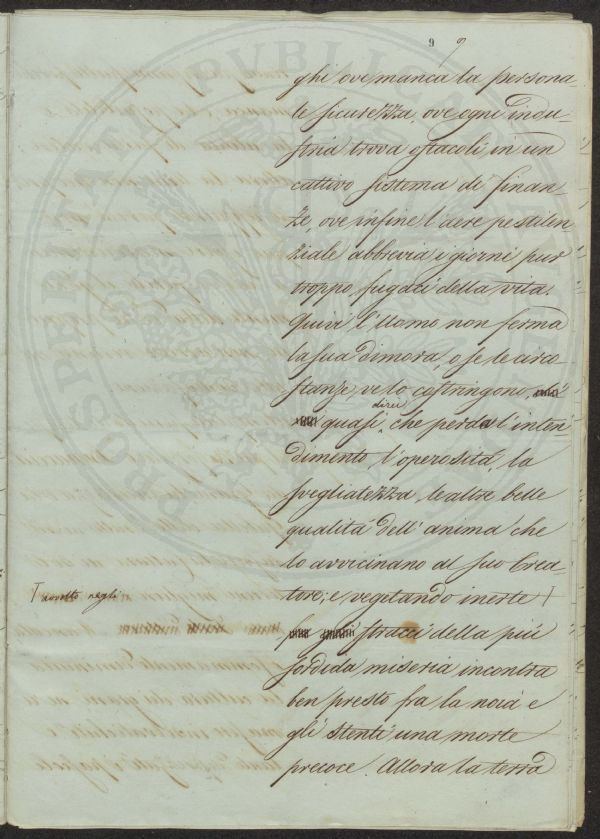 9 9
ghi ove manca la persona-
le sicurezza, ove ogni indu-
stria trova ostacoli in un
cattivo sistema di finan-
ze, ove infine l'aere pestilen-
ziale abbrevia i giorni pur
troppo fugaci della vita.
Quivi l'Uomo non ferma
la sua dimora, o se le circo-
stanze ve lo costringono,
direi
quasi, che perda l'inten-
dimento, l'operosità, la
svegliatezza, le altre belle
qualità dell'anima che
lo avvicinano al suo Crea-
tore; e vegetando inerte
avvolto negli
stracci della più
sordida miseria incontra
ben presto fra la noia e
gli stenti una morte
precoce. Allora la terra